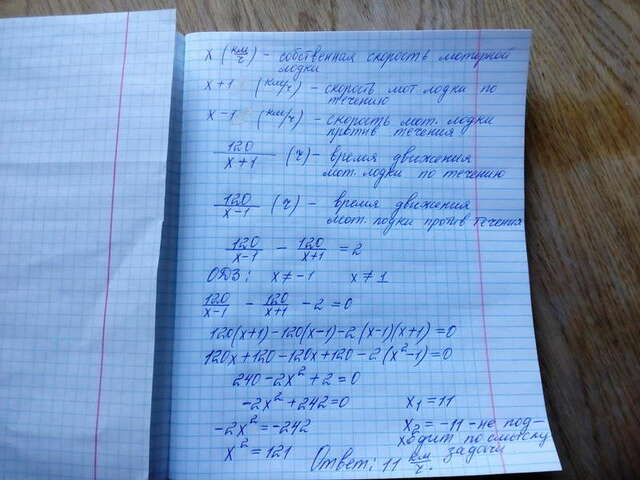 x (км/ч) - собственная скорость моторной
лодки
x+1 (км/ч) - скорость мот лодки по
течению
x-1 (км/ч) - скорость мот. лодки
против течения
120/(x+1) (ч) - время движения
мот. лодки по течению
120/(x-1) (ч) - время движения
мот. лодки против течения
120/(x-1) - 120/(x+1) = 2
ОДЗ: x ≠ -1 x ≠ 1
120/(x-1) - 120/(x+1) - 2 = 0
120(x+1)-120(x-1)-2(x-1)(x+1)=0
120x+120-120x+120-2(x²-1)=0
240-2x²+2=0
-2x²+242=0 x₁=11
-2x²=-242 x₂=-11 - не под-
x²=121 ходит по смыслу
задачи
Ответ: 11 км/ч.